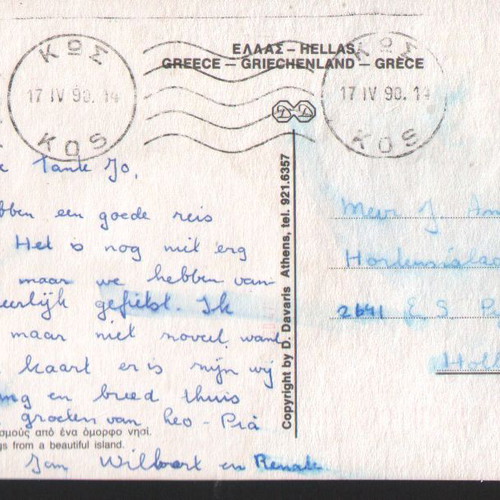 ΚΩΣ
17 IV 90. 14
KOS
ΕΛΛΑΣ – HELLAS
GREECE – GRIECHENLAND – GRÈCE
ΚΩΣ
17 IV 90. 14
KOS
Tante Jo,
bben een goede reis
Het is nog niet erg
maar we hebben van-
eerlijk gefietst. Ik
maar niet noveel, want
kaart er is mijn wij
ng en breed thuis
groeten van Leo - Pià
σμούς από ένα όμορφο νησί.
gs from a beautiful island.
Jan Wilbert en Renate
Copyright by D. Davaris Athens, tel. 921.6357
Mevr J. Am
Hortensialaa
2641 E S P
Holl